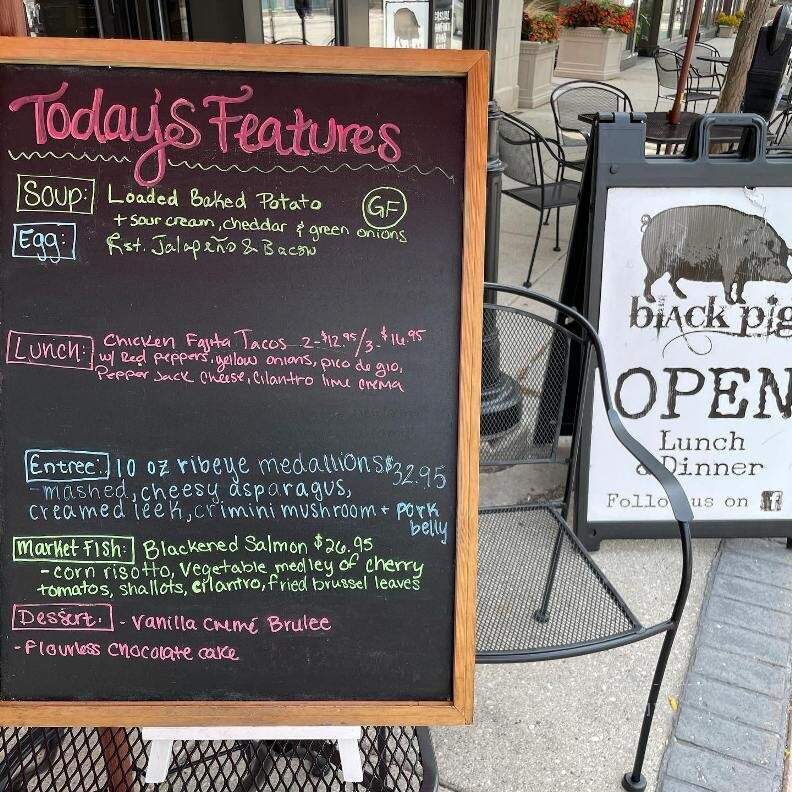 Today's Features
Soup: Loaded Baked Potato
+ sour cream, cheddar & green onions
GF
Egg: Rst. Jalapeño & Bacon
Lunch: Chicken Fajita Tacos 2-$12.95/3-$16.95
w/ Red peppers, yellow onions, pico de gio,
Pepper Jack Cheese, Cilantro lime crema
Entree: 10 oz ribeye medallions $32.95
-mashed, cheesy asparagus,
creamed leek, crimini mushroom + pork
belly
Market Fish: Blackened Salmon $26.95
-corn risotto, vegetable medley of cherry
tomatos, shallots, cilantro, fried brussel leaves
Dessert: - Vanilla Cremé Brulee
- Flourless Chocolate cake
black pig
OPEN
Lunch
& Dinner
Follow us on f